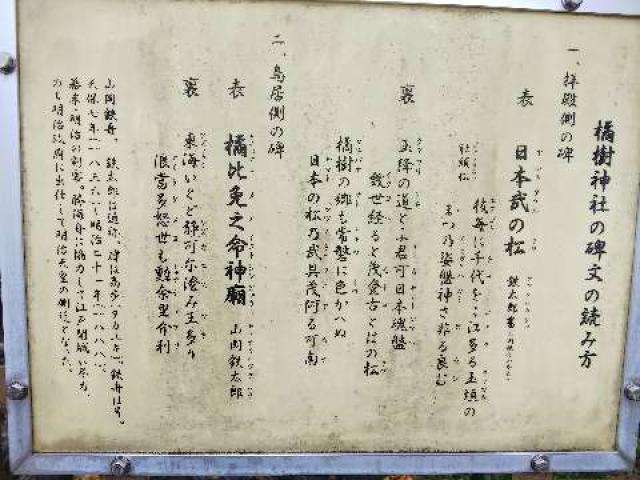 橘樹神社の碑文の読み方
一、拝殿側の碑
表 日本武の松 鉄太郎書
社頭松
枝毎に千代をこ江多る玉垣の
まつ乃姿盤神さ飛る良む
裏 玉鉾の道とふ君可日本魂盤
幾世経ると茂登古とはの松
橘樹の郷も常磐に色かへぬ
日本の松乃武具茂阿る可南
二、鳥居側の碑
表 橘比免之命神廟 山岡鉄太郎
裏 東海いくど静可尓澄み王多り
浪富多怒世も勲奈里介利
山岡鉄舟、鉄太郎は通称、諱は高歩(タカユキ)、鉄舟は号。
天保七年(一八三六)〜明治二十一年(一八八八)、
幕末・明治の剣客。勝海舟に協力して江戸開城に尽力、
のち明治政府に出仕して明治天皇の側近となった。